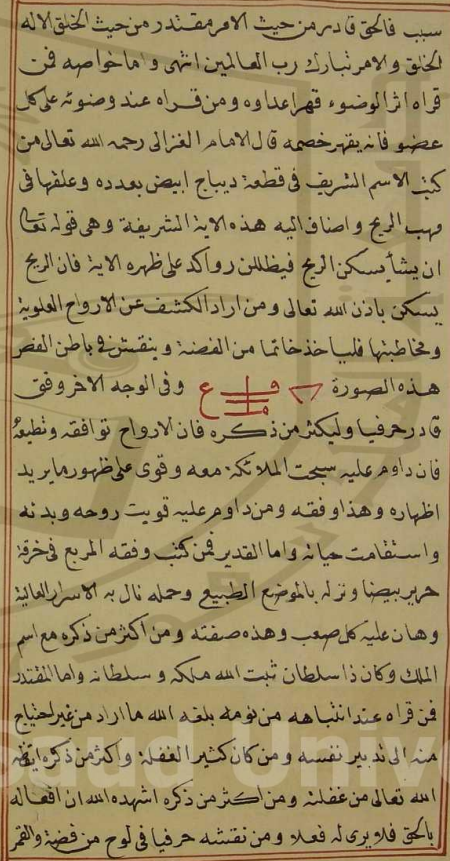 سبب فالحق قادر من حيث الامر مقتدر من حيث الخلق الاله
الخلق والامر تبارك رب العالمين انتهى واما خواصه فمن
قراه اثر الوضوء قهر اعداوه ومن قراه عند وضوئه على كل
عضو فانه يقهر خصمه قال الامام الغزالى رحمه الله تعالى من
كتب الاسم الشريف فى قطعة ديباج ابيض بعدده وعلقها فى
مهب الريح واضاف اليه هذه الاية الشريفة وهى قوله تعالى
ان يشأ يسكن الريح فيظللن رواكد على ظهره الاية فان الريح
يسكن باذن الله تعالى ومن اراد الكشف عن الارواح العلوية
ومخاطبتها فلياخذ خاتما من الفضة وينقش فى باطن الفص
هذه الصورة وفى الوجه الاخر وفق
قادر حرفيا وليكثر من ذكره فان الارواح توافقه وتطيعه
فان داوم عليه سبحت الملائكة معه وقوى على ظهور ما يريد
اظهاره وهذا وفقه ومن داوم عليه قويت روحه وبدنه
واستقامت حياته واما القدير فمن كتب وفقه المربع فى خرقة
حرير بيضا ونزله بالموضع الطبيعى وحمله نال به الاسرار العالية
وهان عليه كل صعب وهذه صفته ومن اكثر من ذكره مع اسم
الملك وكان ذا سلطان ثبت الله ملكه وسلطانه واما المقتدر
فمن قراه عند انتباهه من نومه بلغه الله ما اراد من غير احتياج
منه الى تدبير نفسه ومن كان كثير الغفلة واكثر من ذكره ايقظه
الله تعالى من غفلته ومن اكثر من ذكره اشهده الله ان افعاله
بالحق فلا يرى له فعلا ومن نقشه حرفيا فى لوح من فضة والقمر
Saud Unive